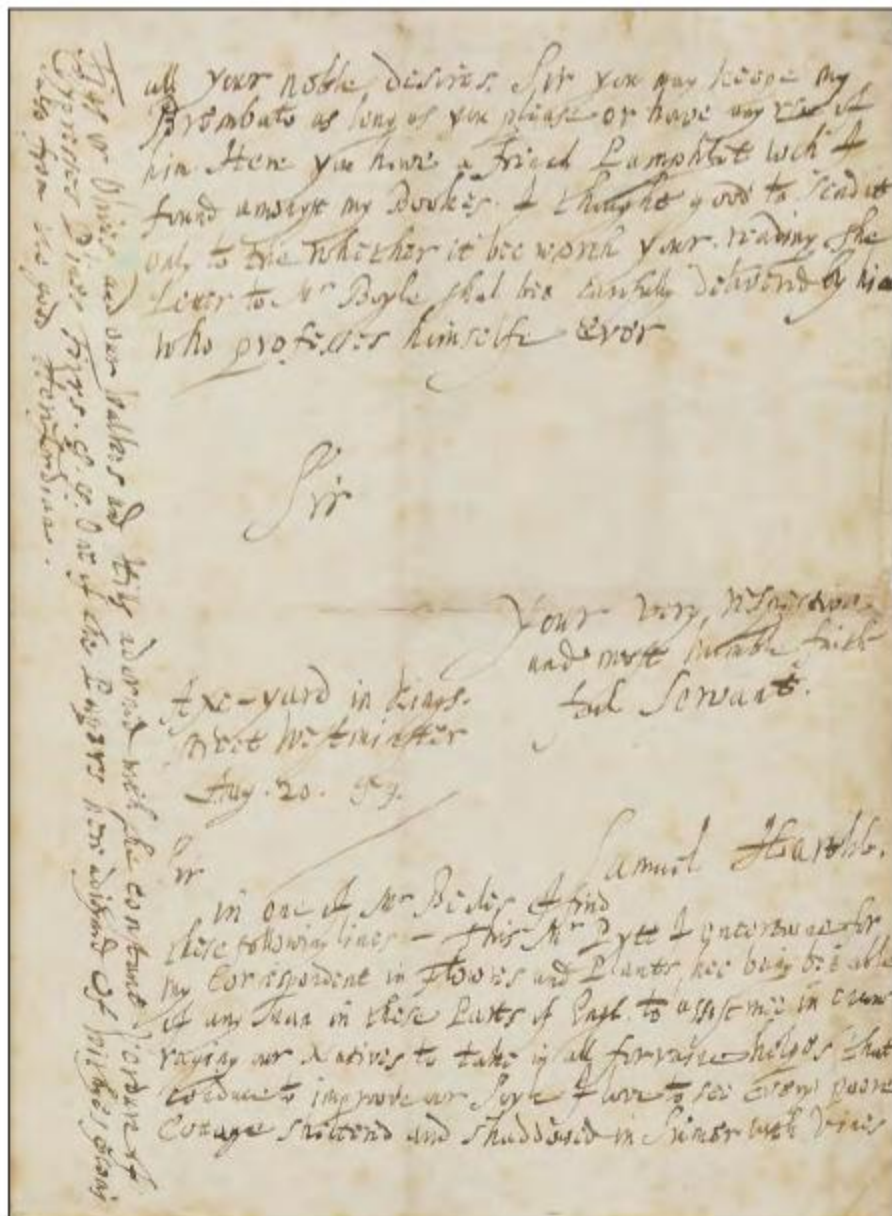 all your noble desires. Sir you may keepe my
Brombato as long as you please or have any use of
him. Here you have a Pamphlet wch I
found amongst my Bookes. I thought good to send it
only to trie whether it bee worth your reading. The
Letter to Mr Boyle shal bee carefully delivered by him
who professes himselfe ever
Sir
Your very respective
and most humble faith
ful Servant.
Axe-yard in Kings-
street Westminster
Aug. 20. 59.
Samuel Hartlib.
Sir
in one of Mr Beales I find
these following lines – This Mr Pytt I entertaine for
my Correspondent in Flowres and Plants, hee being best able
of any Man in these Parts of Engl. to assist mee in encou
raging our Natives to take in all forraine helpes that
conduce to improove our Soyle I love to see every poore
Cotage sheltered and shaddowed in Summer with Vines
Figs or Olives and our Walkes and Hills adorned with the constant Verdure of
Cypresses Pines Firrs. &c. One of the Papers
from the good